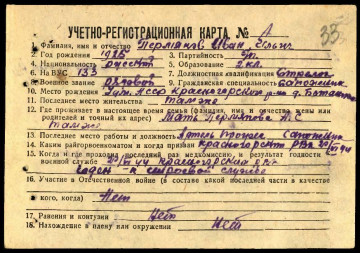 УЧЕТНО-РЕГИСТРАЦИОННАЯ КАРТА № 1
1. Фамилия, имя и отчество Перляков Иван
2. Год рождения 1925 3. Партийность б/п
4. Национальность русский 5. Образование 2 кл.
6. На ВУС 133 7. Должностная квалификация стрелок
8. Военное звание рядовой 9. Гражданская специальность сапожник
10. Место рождения Удм. АССР Красногорский р-он д.
11. Последнее место жительства там же
12. Где проживает в настоящее время семья (фамилия, имя и отчество жены или родителей и точный их адрес) Мать
там же
13. Последнее место работы и должность Артель сапожник
14. Каким райгорвоенкоматом и когда призван Красногорск. РВК
15. Когда и где проходил последний раз медкомиссию и результат годности к военной службе Красногорский РВК
годен к строевой службе
16. Участие в Отечественной войне (в составе какой последней части и в качестве
кого, когда) Нет
17. Ранения и контузии Нет
18. Нахождение в плену или окружении Нет